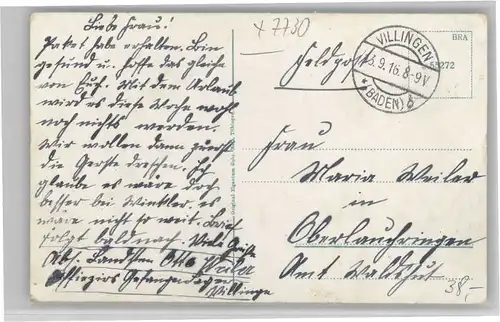 Liebe Frau!
Paket habe erhalten. Bin
gesund u. hoffe das gleiche
von Euch. Mit dem Urlaub
wird es diese Woche wohl
noch nichts werden.
Wir wollen dann zuerst
die Gerste dreschen. Ich
glaube es wäre doch
besser bei Winkler. Es
wäre nicht so weit. Brief
folgt bald nach. Viele Grüße
Abs. Landstm Otto
Offiziers Gefangenenlager
Villingen
x 7730
Feldpost
VILLINGEN
.9.16.8-9V
*(BADEN)
BRA
Frau
Maria Weiler
in
Oberlauchringen
Amt Waldshut
38,-